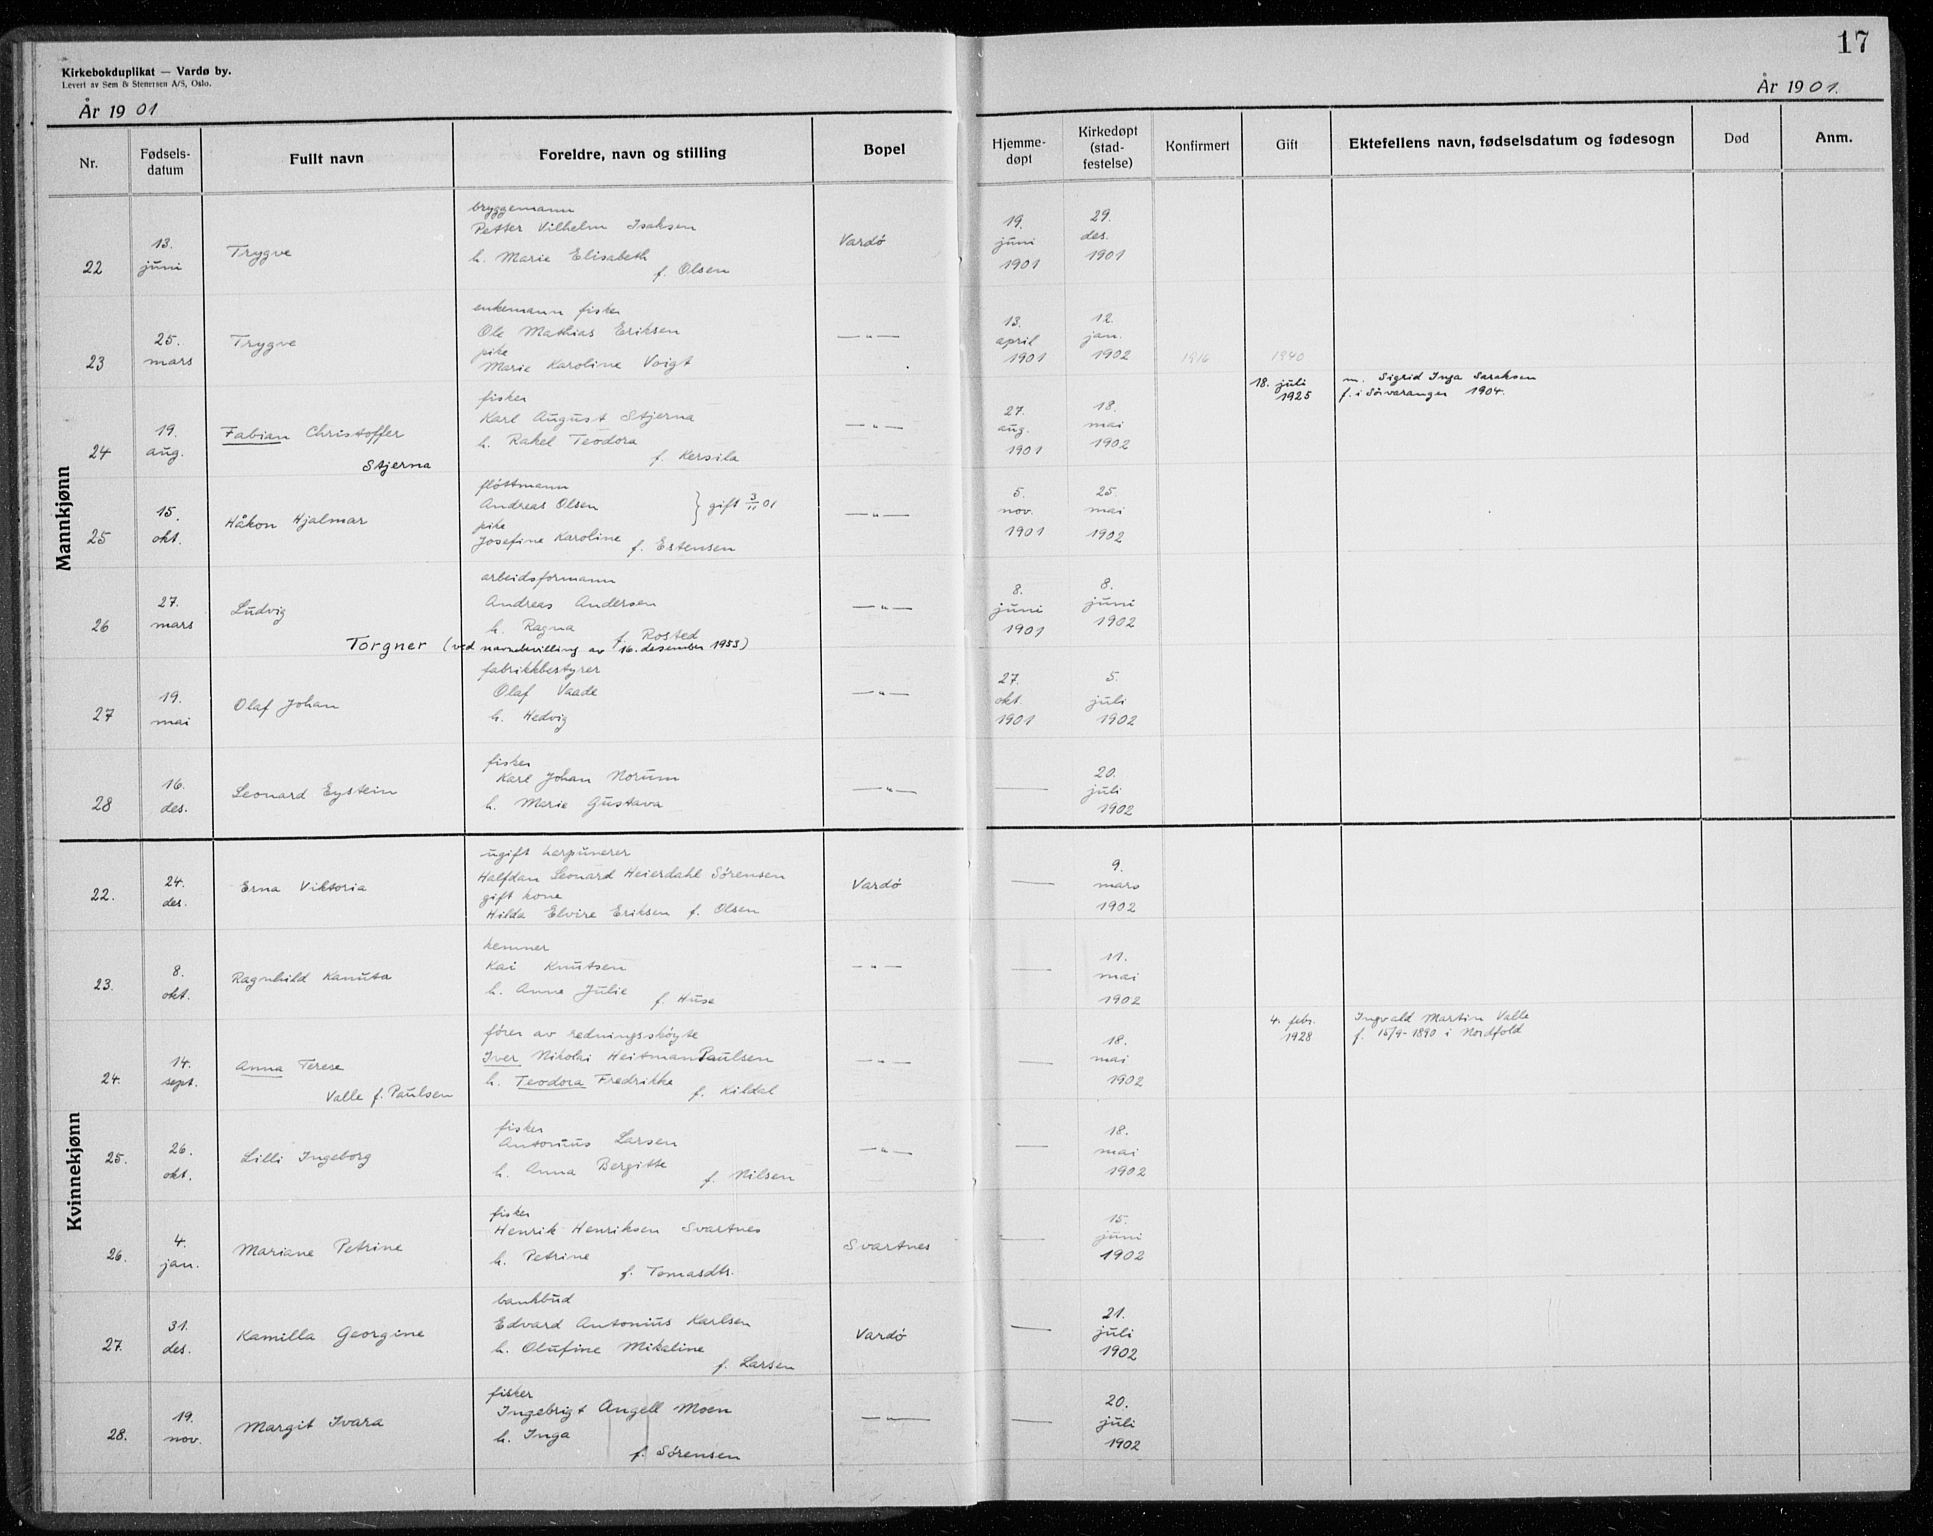 17
Kirkebokduplikat — Vardø by.
Levert av Sem & Stenersen A/S, Oslo.
År 1901
År 1901.
Nr. Fødselsdatum Fullt navn Foreldre, navn og stilling Bopel Hjemmedøpt Kirkedøpt (stadfestelse) Konfirmert Gift Ektefellens navn, fødselsdatum og fødesogn Død Anm.
Mannkjønn
bryggemann
22 13. juni Trygve Petter Vilhelm Isaksen Vardø 19. juni 1901 29. des. 1901
h. Marie Elisabeth
f. Olsen
enkemann fisker
23 25. mars Trygve Ole Mathias Eriksen —"— 13. april 1901 12. jan. 1902 1916 1940
pike
Marie Karoline Voigt
fisker
24 19. aug. Fabian Christoffer Karl August Stjerna —"— 27. aug. 1901 18. mai 1902 18. juli 1925 m. Sigrid Inga Saraksen
f. i Sörvaranger 1904.
h. Rakel Teodora
Stjerna f. Kersila
fløttmann
25 15. okt. Håkon Hjalmar Andreas Olsen } gift 3/11 01 —"— 5. nov. 1901 25. mai 1902
pike
Josefine Karoline f. Estensen
arbeidsformann
26 27. mars Ludvig Andreas Andersen —"— 8. juni 1901 8. juni 1902
h. Ragna f. Rosted
Torgner (ved navnebevilling av 16. desember 1953)
fabrikkbestyrer
27 19. mai Olaf Johan Olaf Vaade —"— 27. okt. 1901 5. juli 1902
h. Hedvig
fisker
28 16. des. Leonard Eystein Karl Johan Norum —"— — 20. juli 1902
h. Marie Gustava
Kvinnekjønn
ugift harpunerer
22. 24. des. Erna Viktoria Halfdan Leonard Heierdahl Sørensen Vardø — 9. mars 1902
gift kone
Hilda Elvire Eriksen f. Olsen
kemner
23. 8. okt. Ragnhild Kanuta Kai Knutsen —"— — 11. mai 1902
h. Anne Julie f. Huse
fører av redningsskøyte
24. 14. sept. Anna Terese Iver Nikolai Heitman Paulsen —"— — 18. mai 1902 4. febr. 1928 Ingvald Martin Valle
f. 15/9-1890 i Nordfold
h. Teodora Fredrikke
Valle f. Paulsen f. Kildal
fisker
25. 26. okt. Lilli Ingeborg Antonius Larsen —"— — 18. mai 1902
h. Anna Bergitte f. Nilsen
fisker
26. 4. jan. Mariane Petrine Henrik Henriksen Svartnes Svartnes — 15. juni 1902
h. Petrine
f. Tomasdtr.
bankbud
27. 31. des. Kamilla Georgine Edvard Antonius Karlsen Vardø — 21. juli 1902
h. Olufine Mikaline
f. Larsen
fisker
28. 19. nov. Margit Ivara Ingebrigt Angell Moen —"— — 20. juli 1902
h. Inga
f. Sørensen